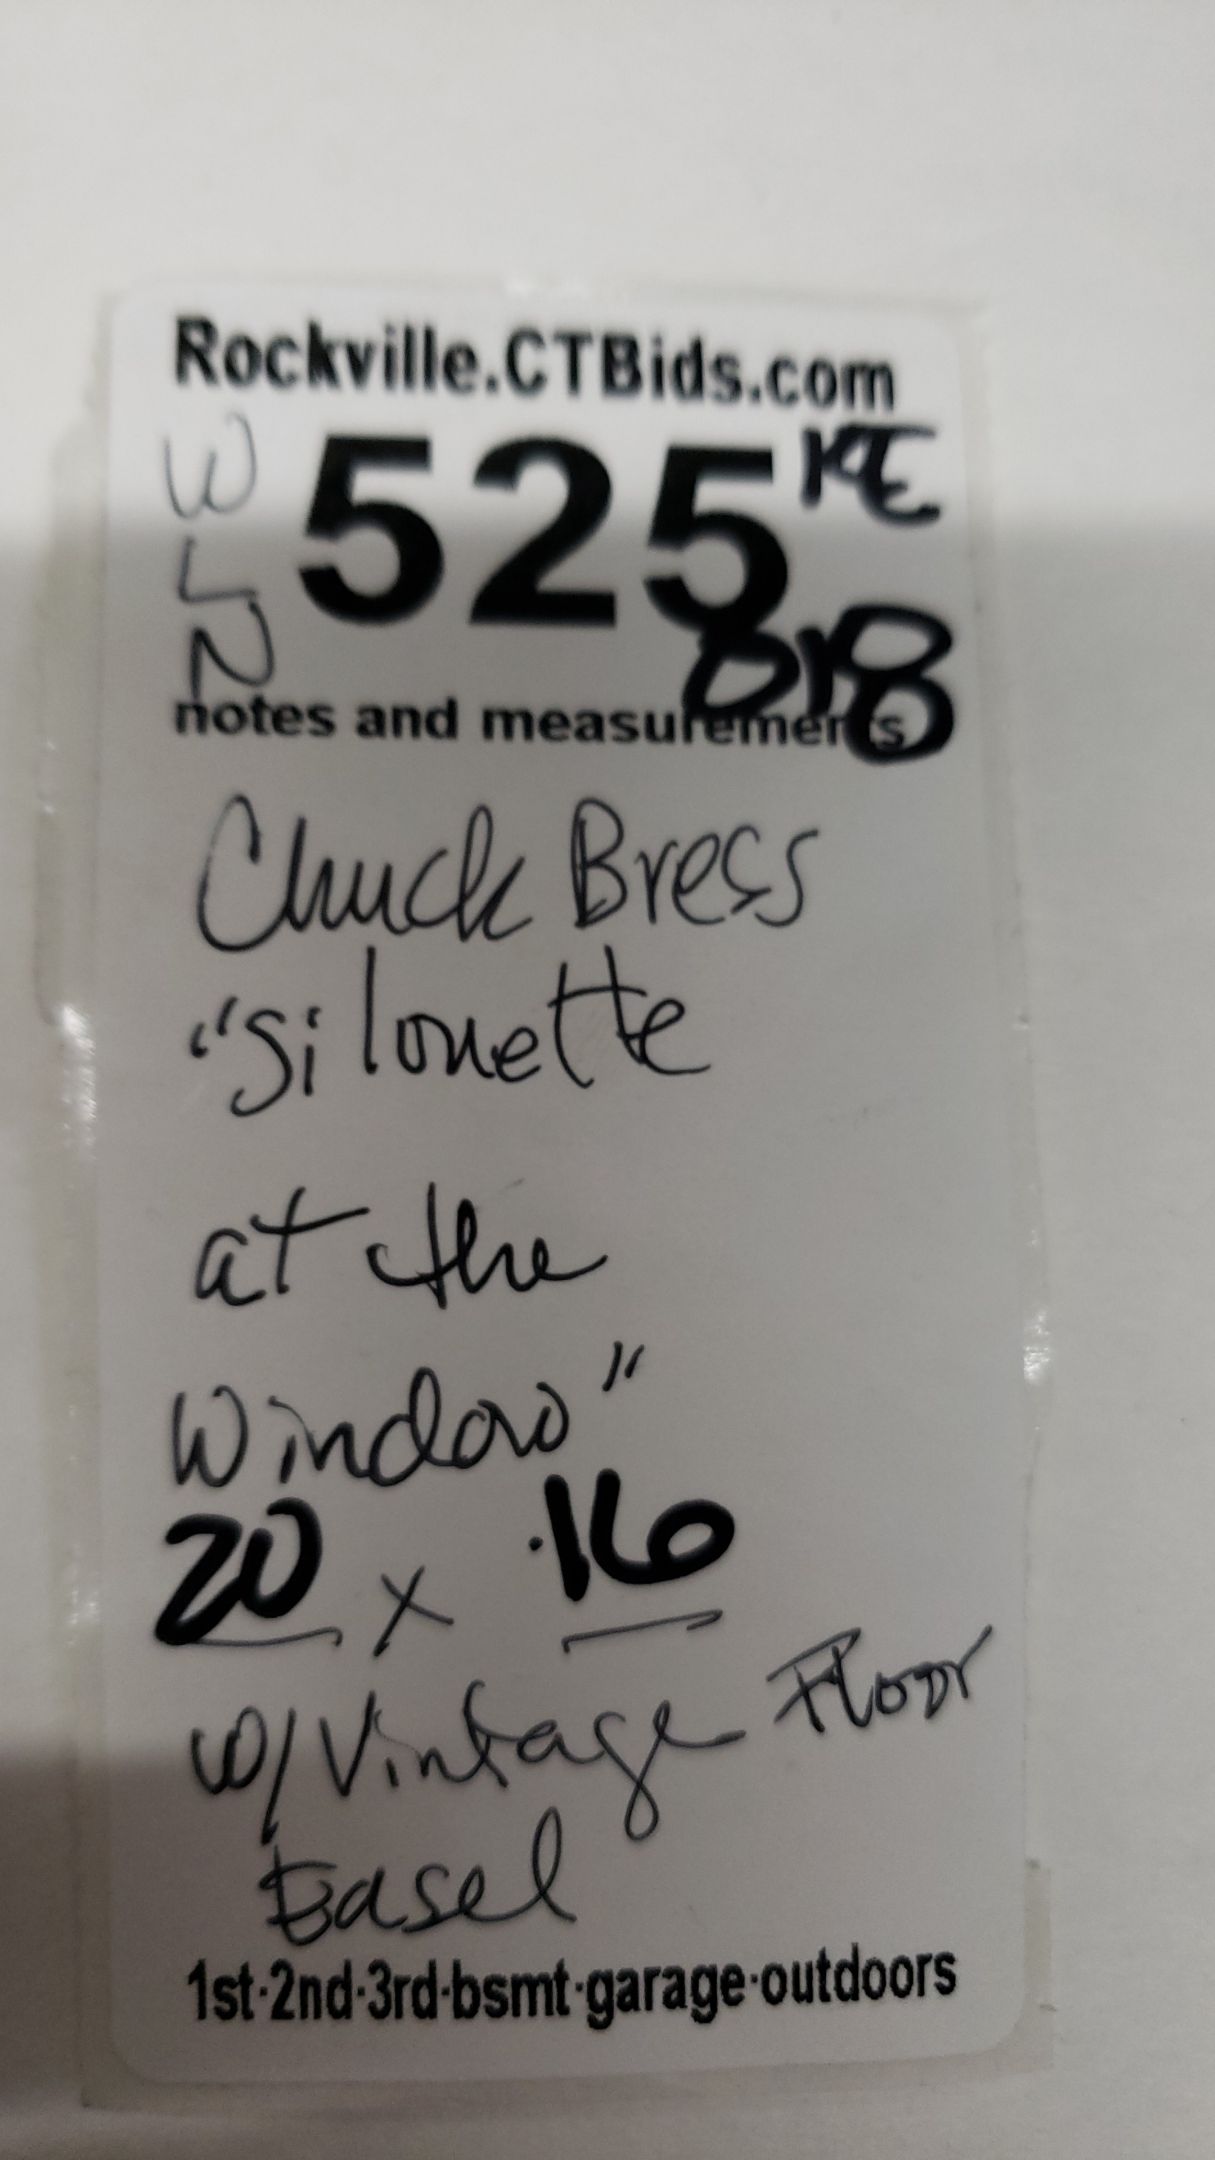 Rockville.CTBids.com
W
L
N
525
KE
notes and measurements
Chuck Bress
"Silouette
at the
Window"
20 x 16
w/Vintage Floor
Easel
1st·2nd·3rd·bsmt·garage·outdoors